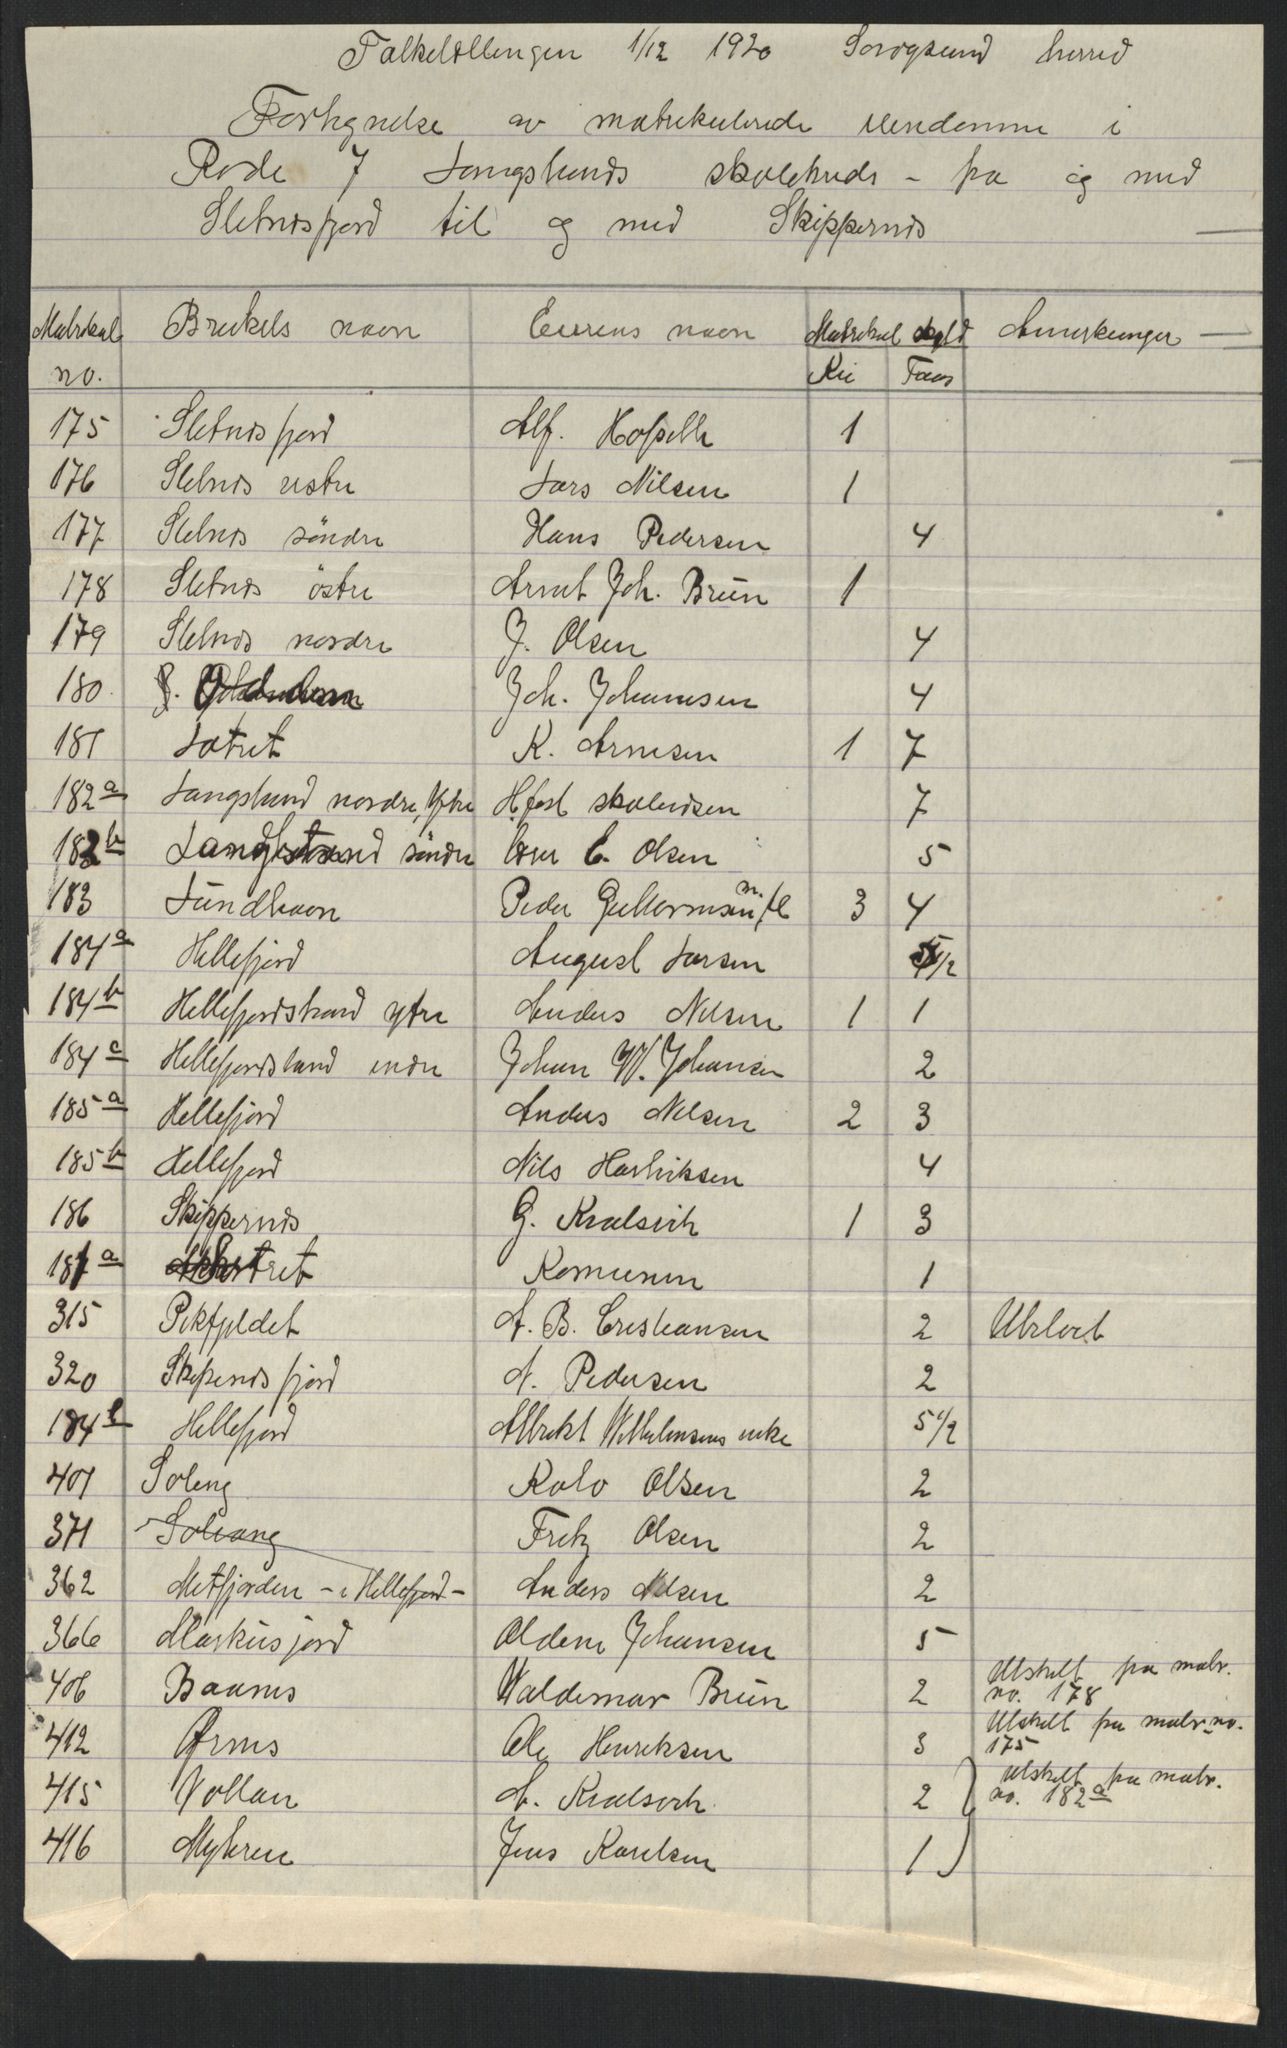 Folketellingen 1/12 1920 Sørøysund herred
Fortegnelse av matrikulerede eiendomme i
Rode 7 Langstrands skolekreds - fra og med
Sletnesfjord til og med Skippernes
Matrikul no. Brukets navn Eierens navn Matrikul skyld Anmerkninger
Kr Øre
175 Sletnesfjord Alf. 1
176 Sletnes vestre Lars Nilsen 1
177 Sletnes söndre Hans Pedersen 4
178 Sletnes östre Arnt Joh. Brün 1
179 Sletnes nordre J. Olsen 4
180 Joh. Johannesen 4
181 K. Arnesen 1 7
182a Langstrand nordre, Ytre 7
182b Langstrand söndre E. Olsen 5
183 Sundhavn Peder 3 4
184a Hellefjord August Larsen 1/2
184b Hellefjordstrand ytre Anders Nilsen 1 1
184c Hellefjordstrand indre Johan W. Johansen 2
185a Hellefjord Anders Nilsen 2 3
185b Hellefjord Nils Henriksen 4
186 Skippernes G. Kralsvik 1 3
Komunen 1
315 Pikfjeldet A. B. Cristiansen 2 Utelort
320 Skipsnesfjord N. Pedersen 2
184 Hellefjord Albrekt Wilhelmsens enke 5 1/2
401 Soleng Rolv Olsen 2
371 Solvang Fritz Olsen 2
362 Metfjorden - i Hellefjord - Anders Nilsen 2
366 Markusjord Oldine Johansen 5
406 Baanes Waldemar Brün 2 Utskilt fra matr. no. 178
412 Ørnes Ole Henriksen 3 Utskilt fra matr. no. 175
415 Vollan A. Kralsvik 2 Utskilt fra matr. no. 182a
416 Myhren Jens Karelsen 1